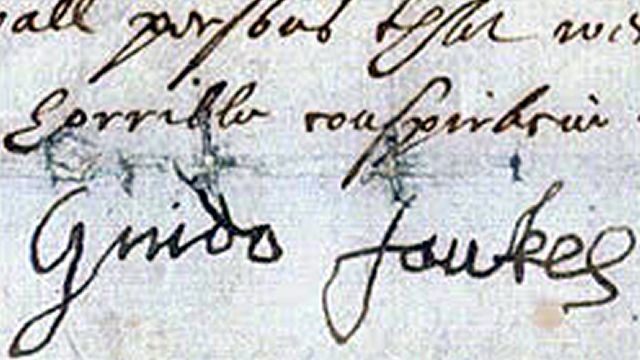 all persons that
horrible conspiracie
Guido fawkes